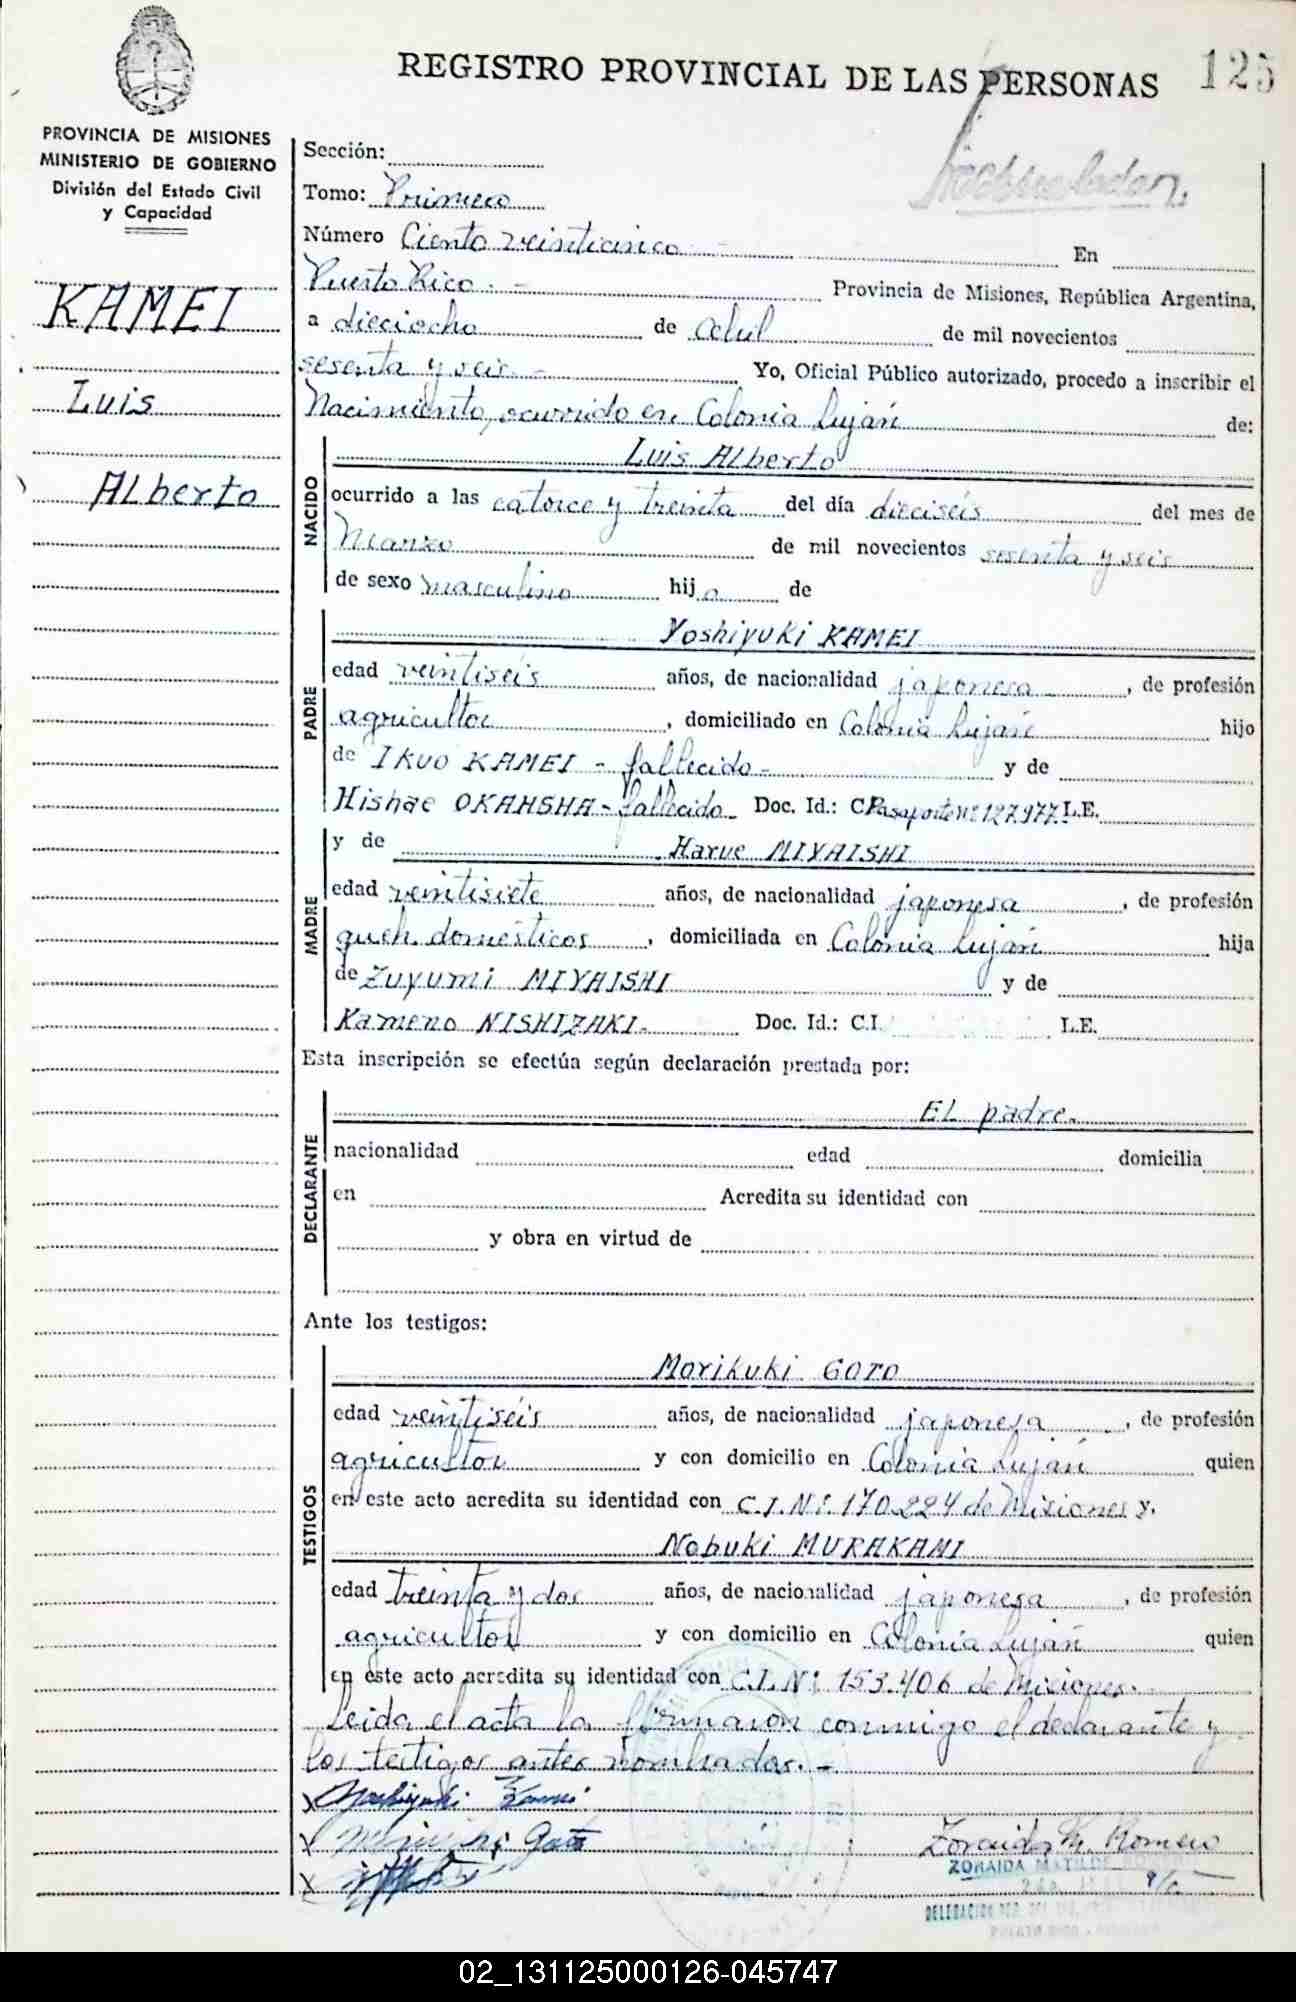 REGISTRO PROVINCIAL DE LAS PERSONAS 125
PROVINCIA DE MISIONES
MINISTERIO DE GOBIERNO
División del Estado Civil
y Capacidad
KAMEI
Luis
Alberto
Sección:
Tomo: Primero
Número Ciento veinticinco En
Puerto Rico. - Provincia de Misiones, República Argentina,
a dieciocho de Abril de mil novecientos
sesenta y seis. - Yo, Oficial Público autorizado, procedo a inscribir el
Nacimiento, ocurrido en Colonia Luján de:
NACIDO
Luis Alberto
ocurrido a las catorce y treinta del día dieciseis del mes de
Marzo de mil novecientos sesenta y seis
de sexo masculino hijo de
PADRE
Yoshiyuki KAMEI
edad veintiseis años, de nacionalidad japonesa, de profesión
agricultor, domiciliado en Colonia Luján hijo
de IKUO KAMEI - fallecido - y de
Hishae OKAHSHA - fallecido Doc. Id.: C Pasaporte Nº 127.977 L.E.
MADRE
y de Harue MIYAISHI
edad veintisiete años, de nacionalidad japonesa, de profesión
queh. domésticos, domiciliada en Colonia Luján hija
de Zuyumi MIYAISHI y de
Kameno NISHIZAKI. Doc. Id.: C.I. L.E.
Esta inscripción se efectúa según declaración prestada por:
DECLARANTE
EL padre.
nacionalidad edad domicilia
en Acredita su identidad con
y obra en virtud de
Ante los testigos:
TESTIGOS
Morikuki GOTO
edad veintiseis años, de nacionalidad japonesa, de profesión
agricultor y con domicilio en Colonia Luján quien
en este acto acredita su identidad con C.I. Nº 170.224 de Misiones y.
Nobuki MURAKAMI
edad treinta y dos años, de nacionalidad japonesa, de profesión
agricultor y con domicilio en Colonia Luján quien
en este acto acredita su identidad con C.I. Nº 153.406 de Misiones.
Leida el acta la firmaron conmigo el declarante y
los testigos antes nombrados. -
X Yoshiyuki Kamei
X Goto
X
Zoraida M. Romero
ZORAIDA MATILDE
DELEGACION
02_131125000126-045747